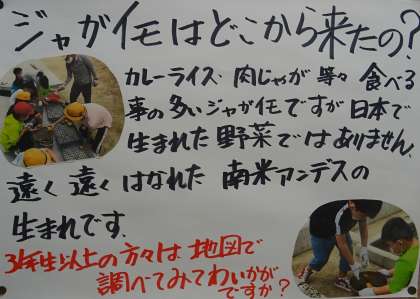 ジャガイモはどこから来たの?
カレーライス、肉じゃが等々 食べる
事の多いジャガイモですが日本で
生まれた野菜ではありません。
遠く遠くはなれた 南米アンデスの
生まれです。
3年生以上の方々は地図で
調べてみてわいかがですか?